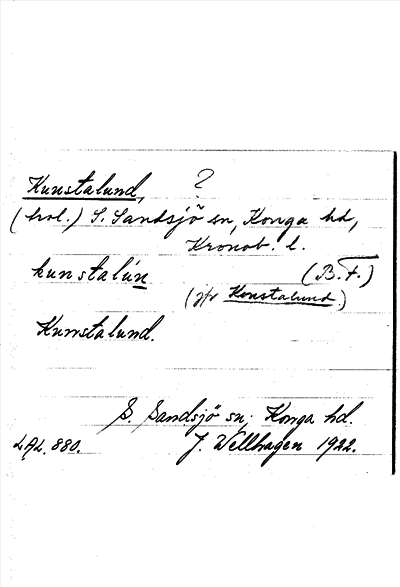 Kunstalund, ?
(krol.) S. Sandsjö sn, Konga hd,
Kronob. l.
kunstalún (B.F.)
(jfr Konstalund)
Kunstalund.
S. Sandsjö sn; Konga hd.
LAL. 880. J. Wellhagen 1922.